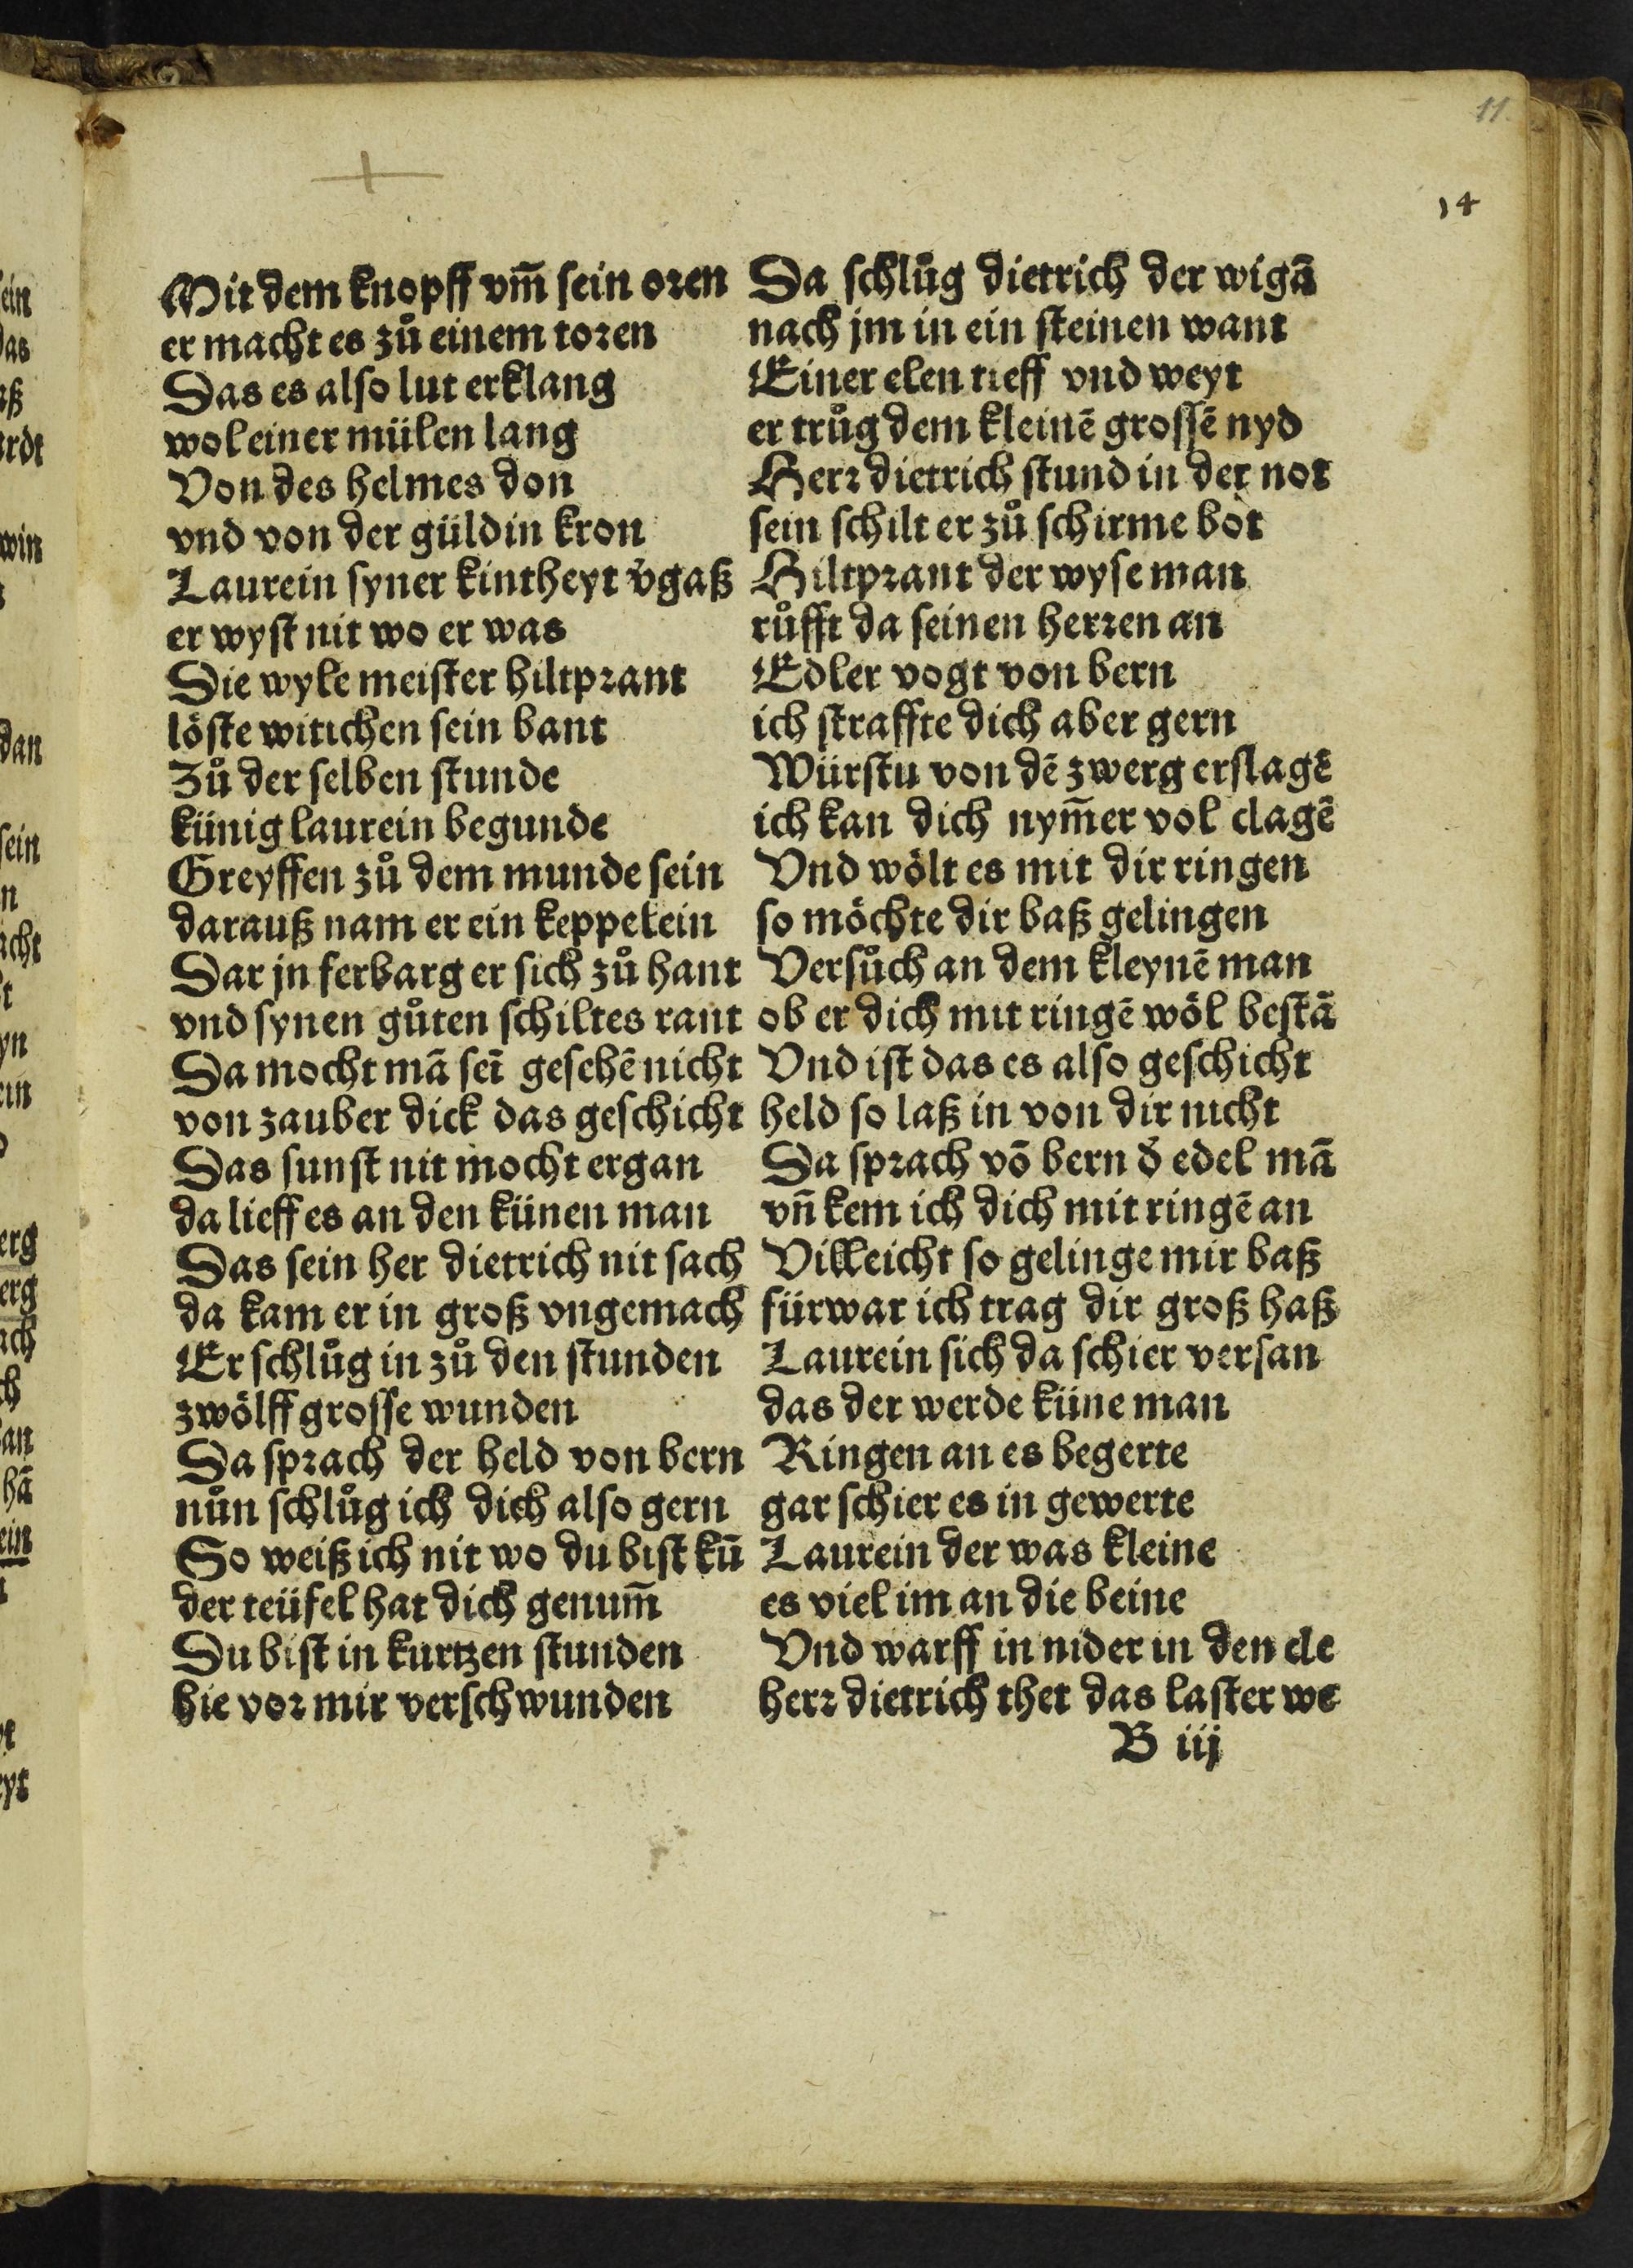 11.
14
Mit dem knopff vm̄ sein oren
er macht es zů einem toren
Das es also lut erklang
wol einer mülen lang
Von des helmes don
vnd von der güldin kron
Laurein syner kintheyt v̄gaß
er wyst nit wo er was
Die wyle meister hiltprant
löste witichen sein bant
Zů der selben stunde
künig laurein begunde
Greyffen zů dem munde sein
darauß nam er ein keppelein
Dar jn ferbarg er sich zů hant
vnd synen gůten schiltes rant
Da mocht mā seī gesehē nicht
von zauber dick das geschicht
Das sunst nit mocht ergan
da lieff es an den künen man
Das sein her dietrich nit sach
da kam er in groß vngemach
Er schlůg in zů den stunden
zwölff grosse wunden
Da sprach der held von bern
nůn schlůg ich dich also gern
So weiß ich nit wo du bist kū
der teüfel hat dich genum̄
Du bist in kurtzen stunden
hie vor mir verschwunden
Da schlůg dietrich der wigā
nach jm in ein steinen want
Einer elen tieff vnd weyt
er trůg dem kleinē grossē nyd
Herr dietrich stund in der not
sein schilt er zů schirme bot
Hiltprant der wyse man
růfft da seinen herren an
Edler vogt von bern
ich straffte dich aber gern
Würstu von dē zwerg erslagē
ich kan dich nym̄er vol clagē
Vnd wölt es mit dir ringen
so möchte dir baß gelingen
Versůch an dem kleynē man
ob er dich mit ringē wöl bestā
Vnd ist das es also geschicht
held so laß in von dir nicht
Da sprach vō bern d̄ edel mā
vn̄ kem ich dich mit ringē an
Villeicht so gelinge mir baß
fürwar ich trag dir groß haß
Laurein sich da schier versan
das der werde küne man
Ringen an es begerte
gar schier es in gewerte
Laurein der was kleine
es viel im an die beine
Vnd warff in nider in den cle
herr dietrich thet das laster we
B iij